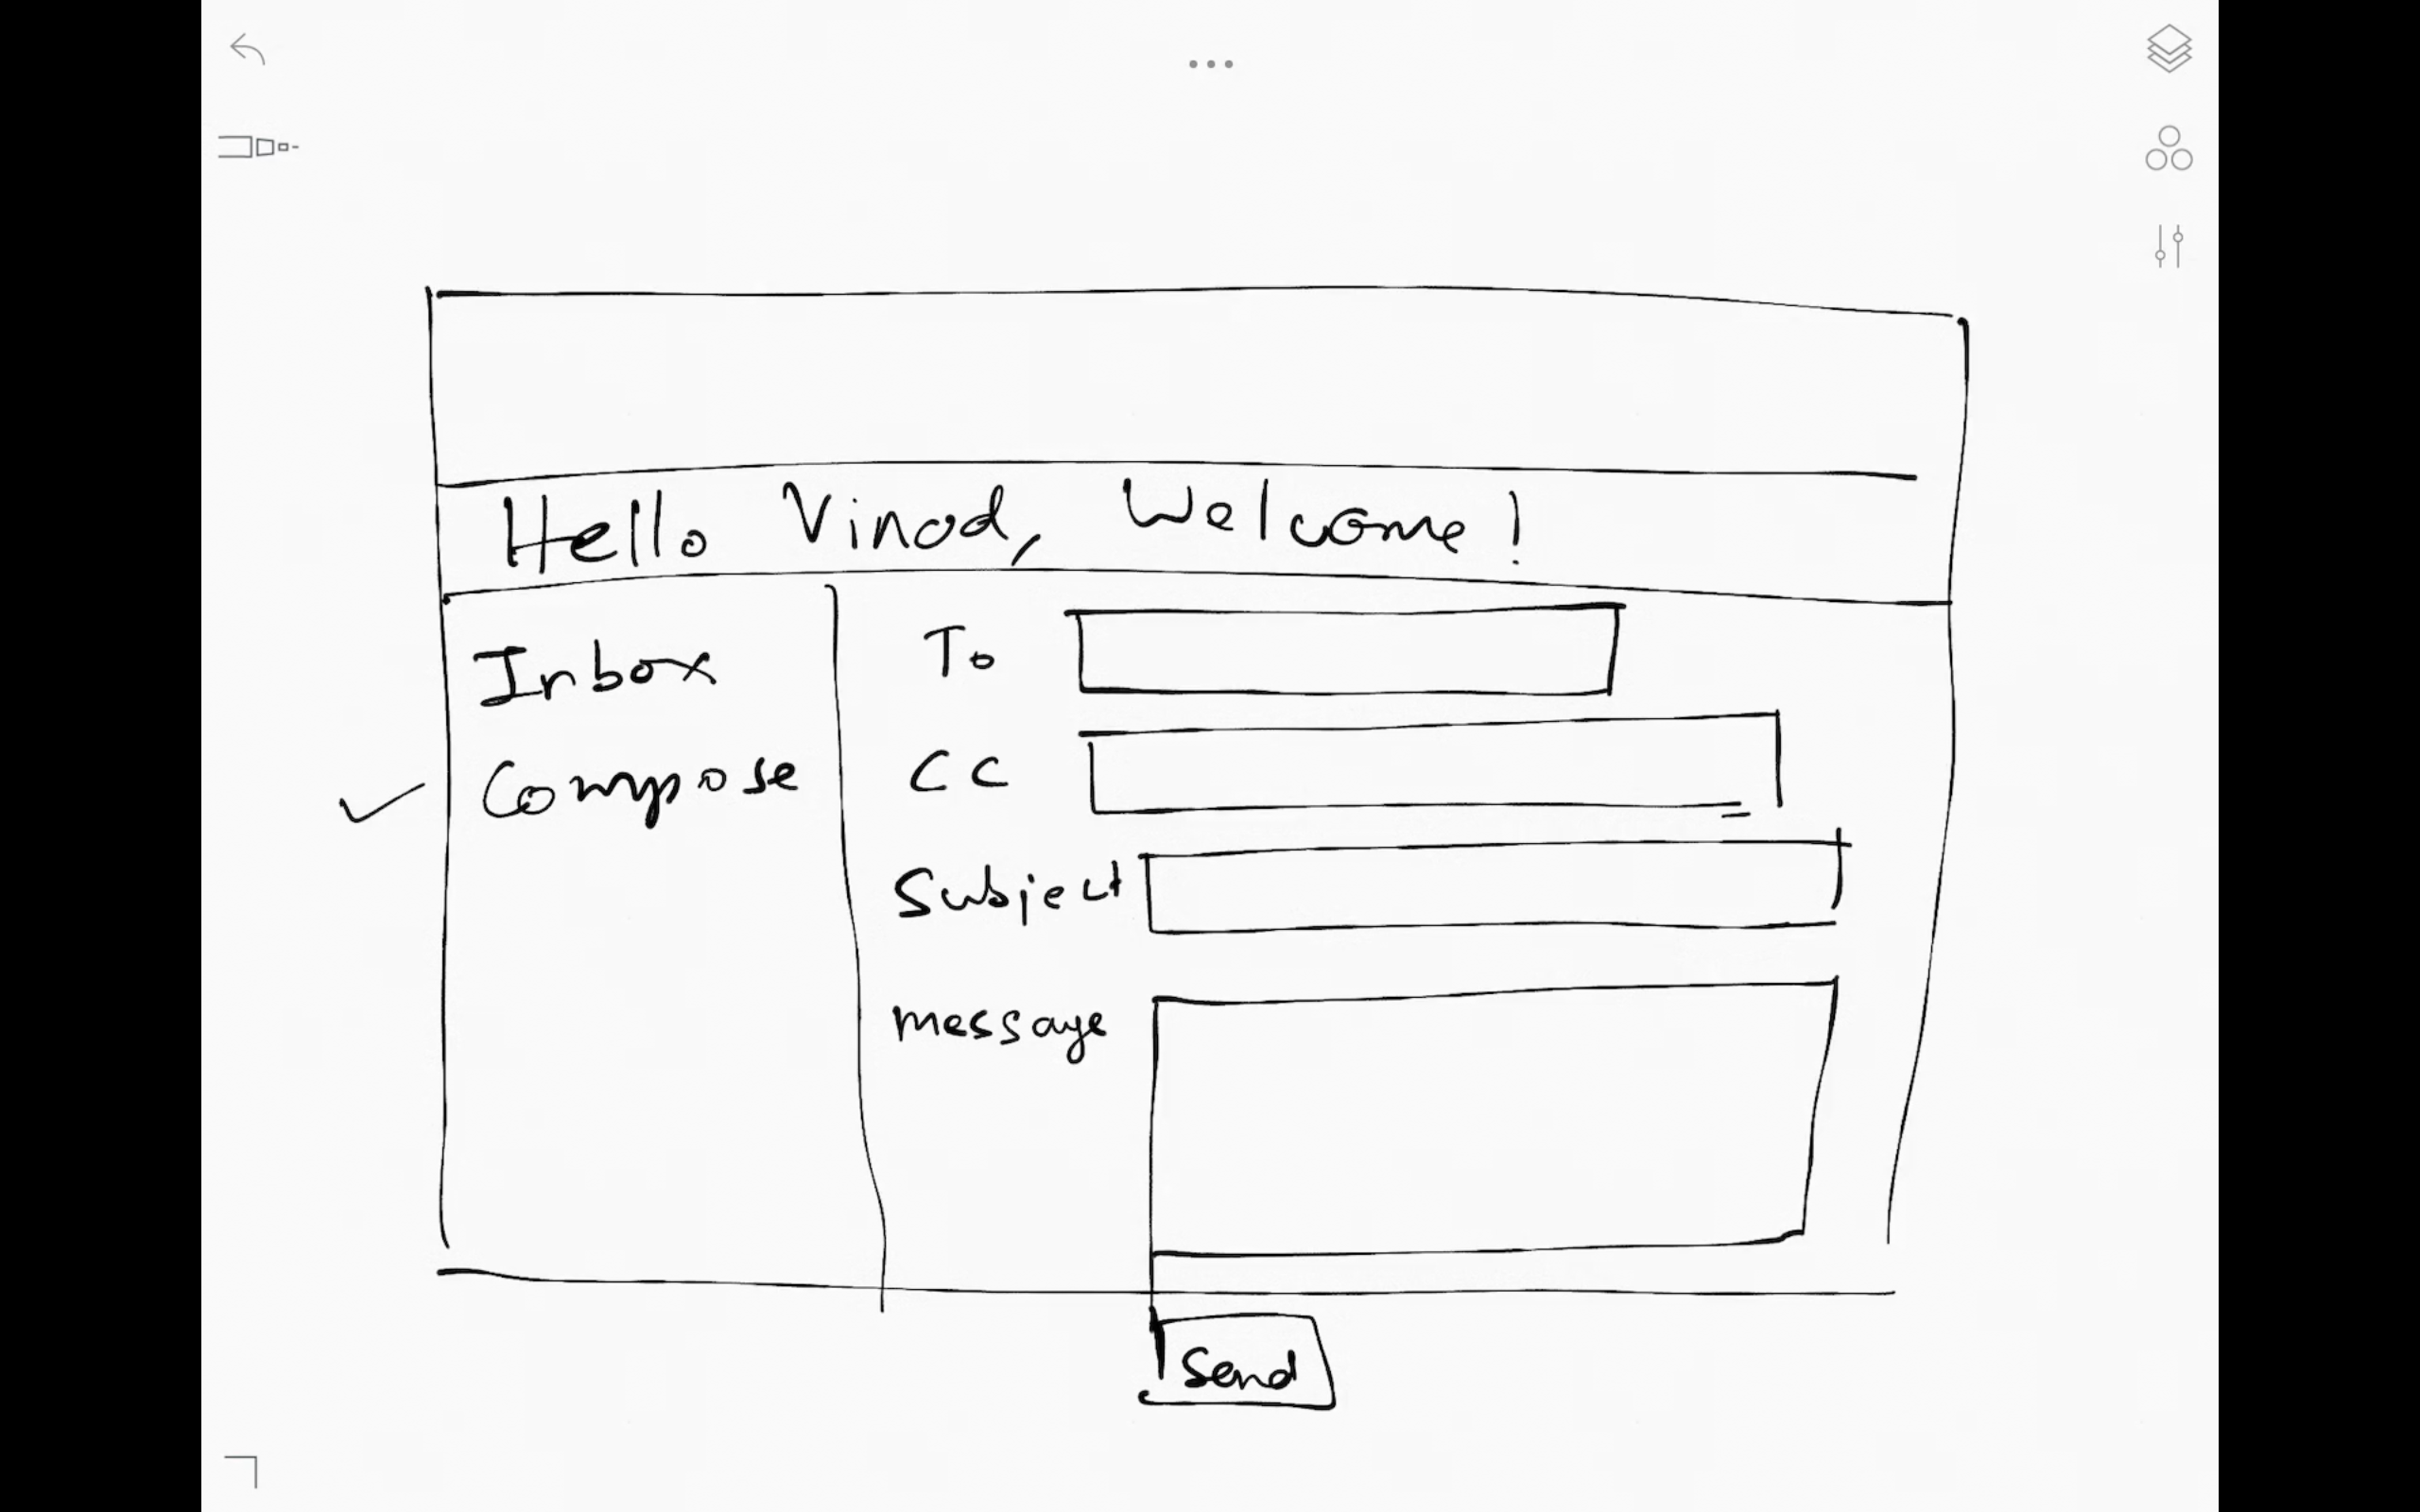 Hello Vinod, Welcome!
Inbox
Compose
To
CC
Subject
message
Send